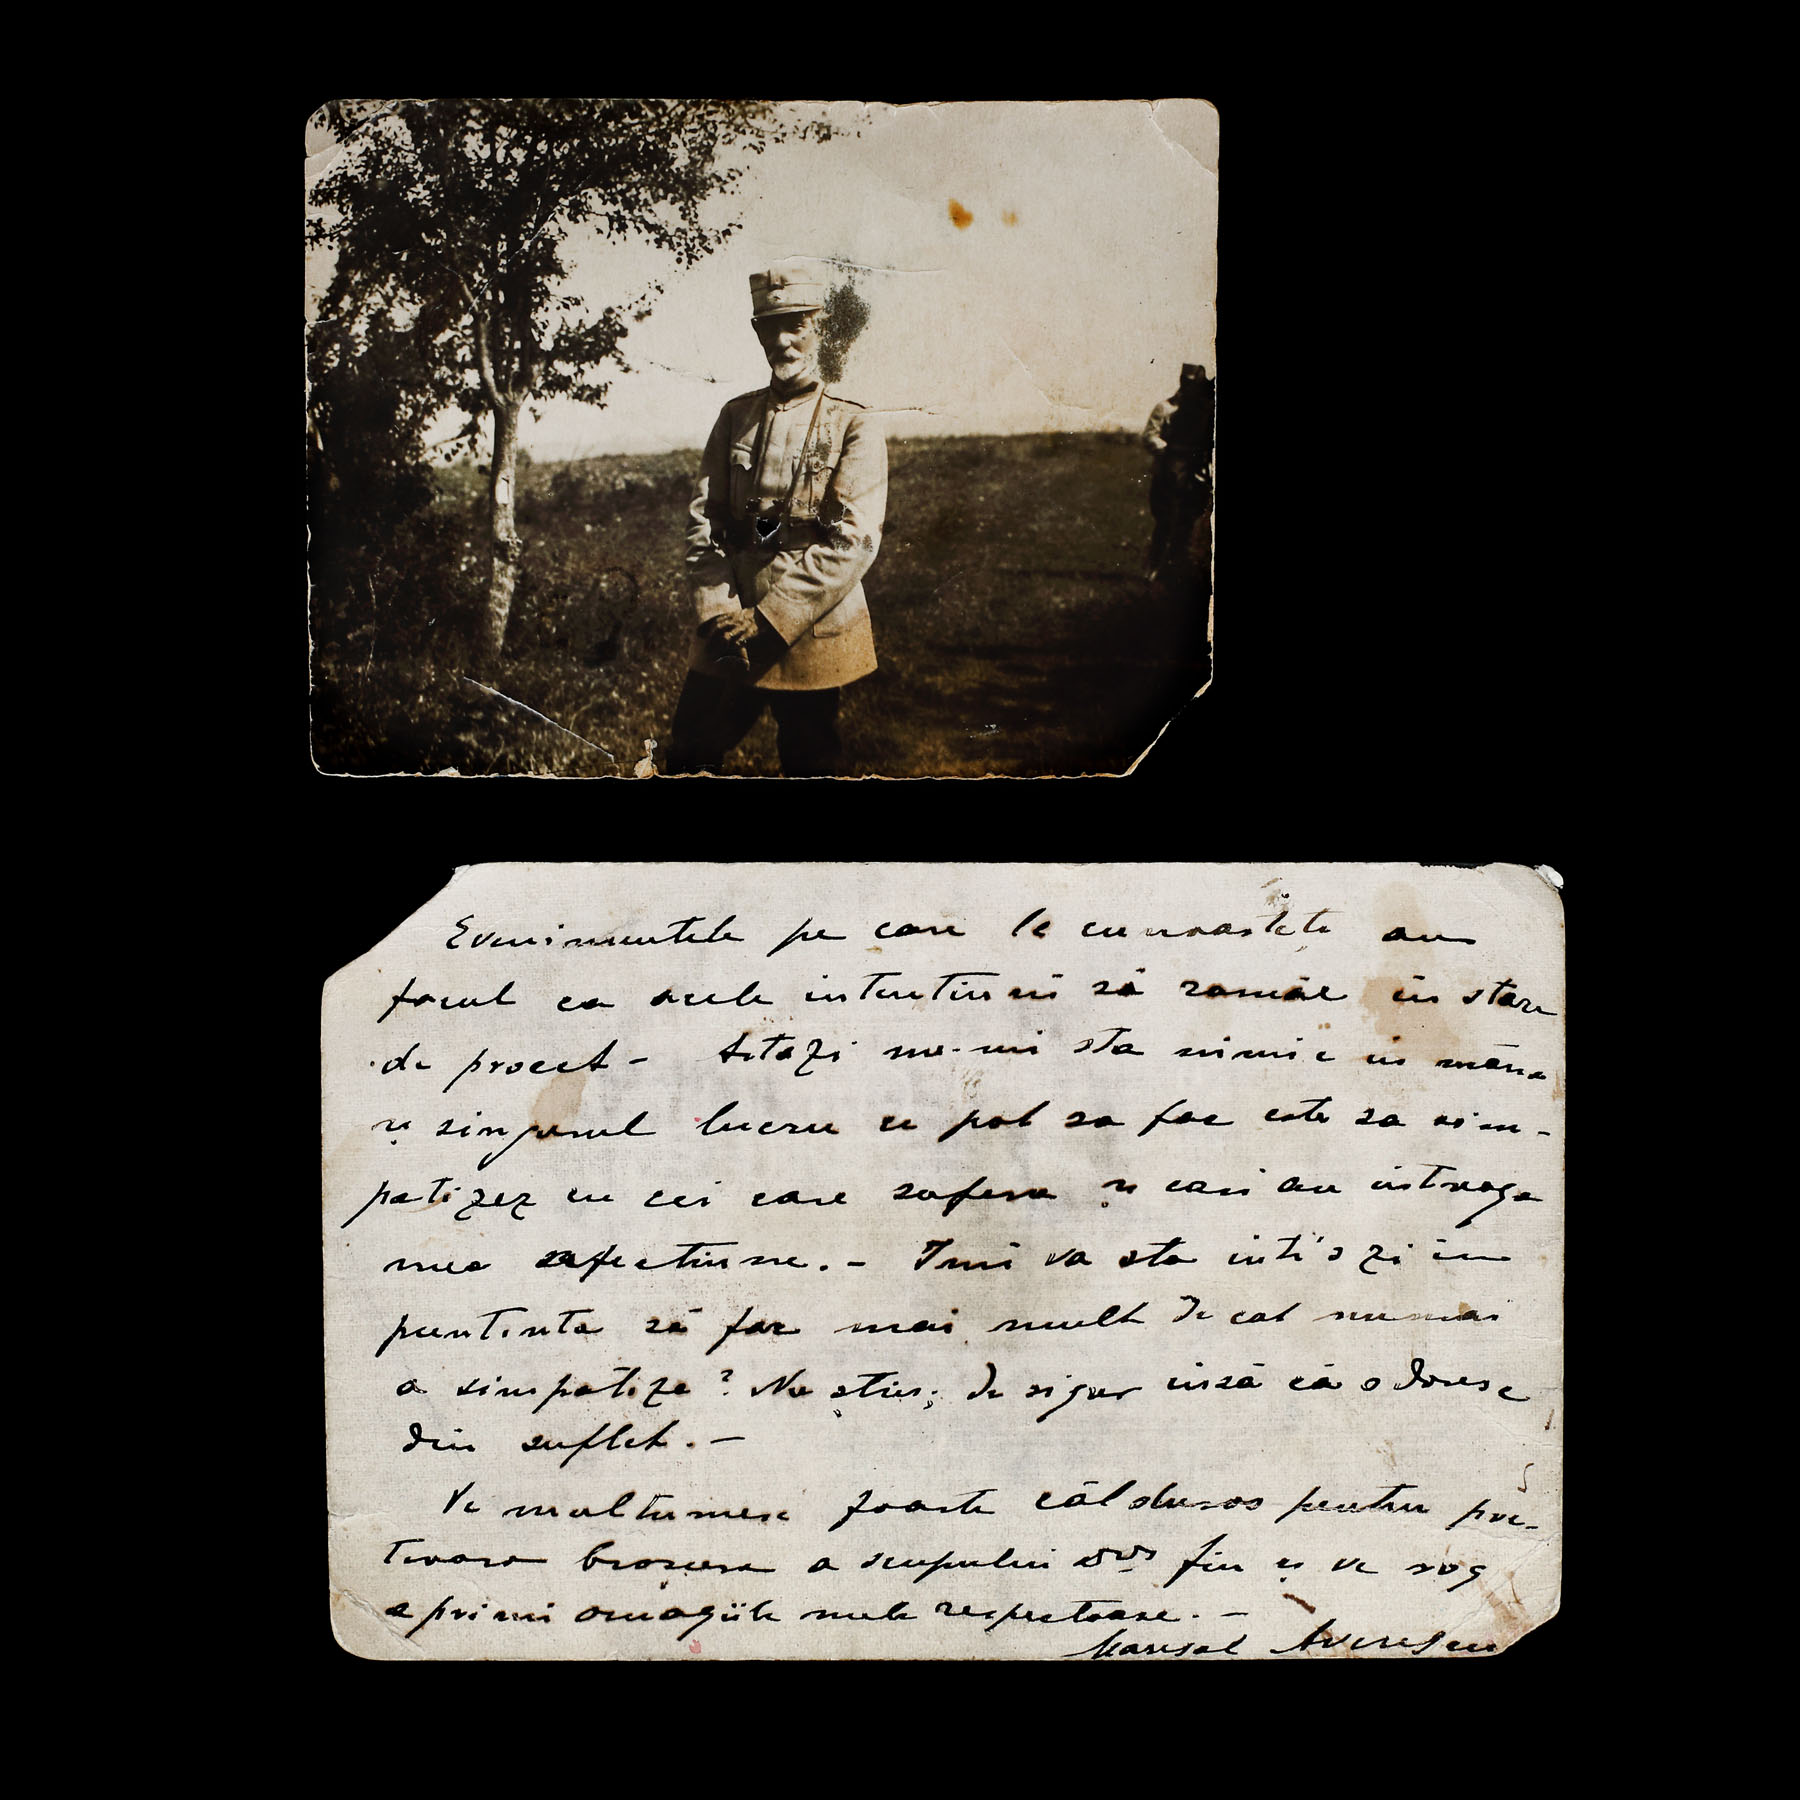 Evenimentele pe care le cunoasteti au
facut ca acele intentiuni să ramâe în stare
de proect – Astazi nu-mi sta nimic in mâna
și singurul lucru ce pot sa fac este sa sim-
patizez cu cei care sufera și cari au intreaga
mea afectiune. – Imi va sta intr'o zi in
puntinta să fac mai mult de cat numai
a simpatiza? Nu știu; de sigur insă că o doresc
din suflet. –
Ve multumesc foarte călduros pentru pre-
tioasa broșura a scupului dvs fiu și ve rog
a primi omagiile mele respectoase. –
Maresal Averescu